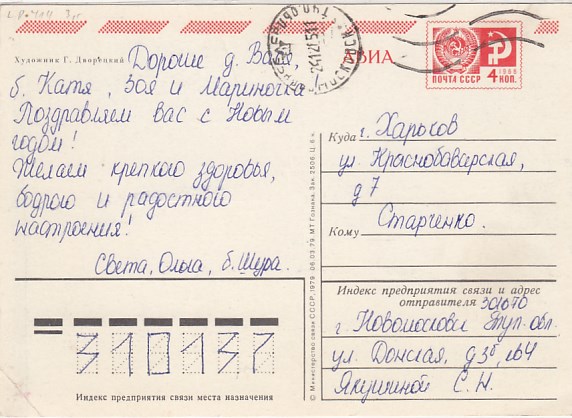 Художник Г. Дворецкий
АВИА
ПОЧТА СССР
1966
4 КОП.
Дорогие д. Ваня,
б. Катя, Зоя и Мариночка
Поздравляем вас с Новым
годом!
Желаем крепкого здоровья,
бодрого и радостного
настроения!
Света, Ольга, б. Шура.
Куда г. Харьков
ул. Краснобаварская,
д 7
Старченко.
Кому
Индекс предприятия связи и адрес
отправителя 301670
г. Новомосковск Тул. обл.
ул. Донская,
Якушиной С. Н.
310137
Индекс предприятия связи места назначения
© Министерство связи СССР, 1979 06.03.79. МТ Гознака. Зак. 2506. Ц. 6 к.